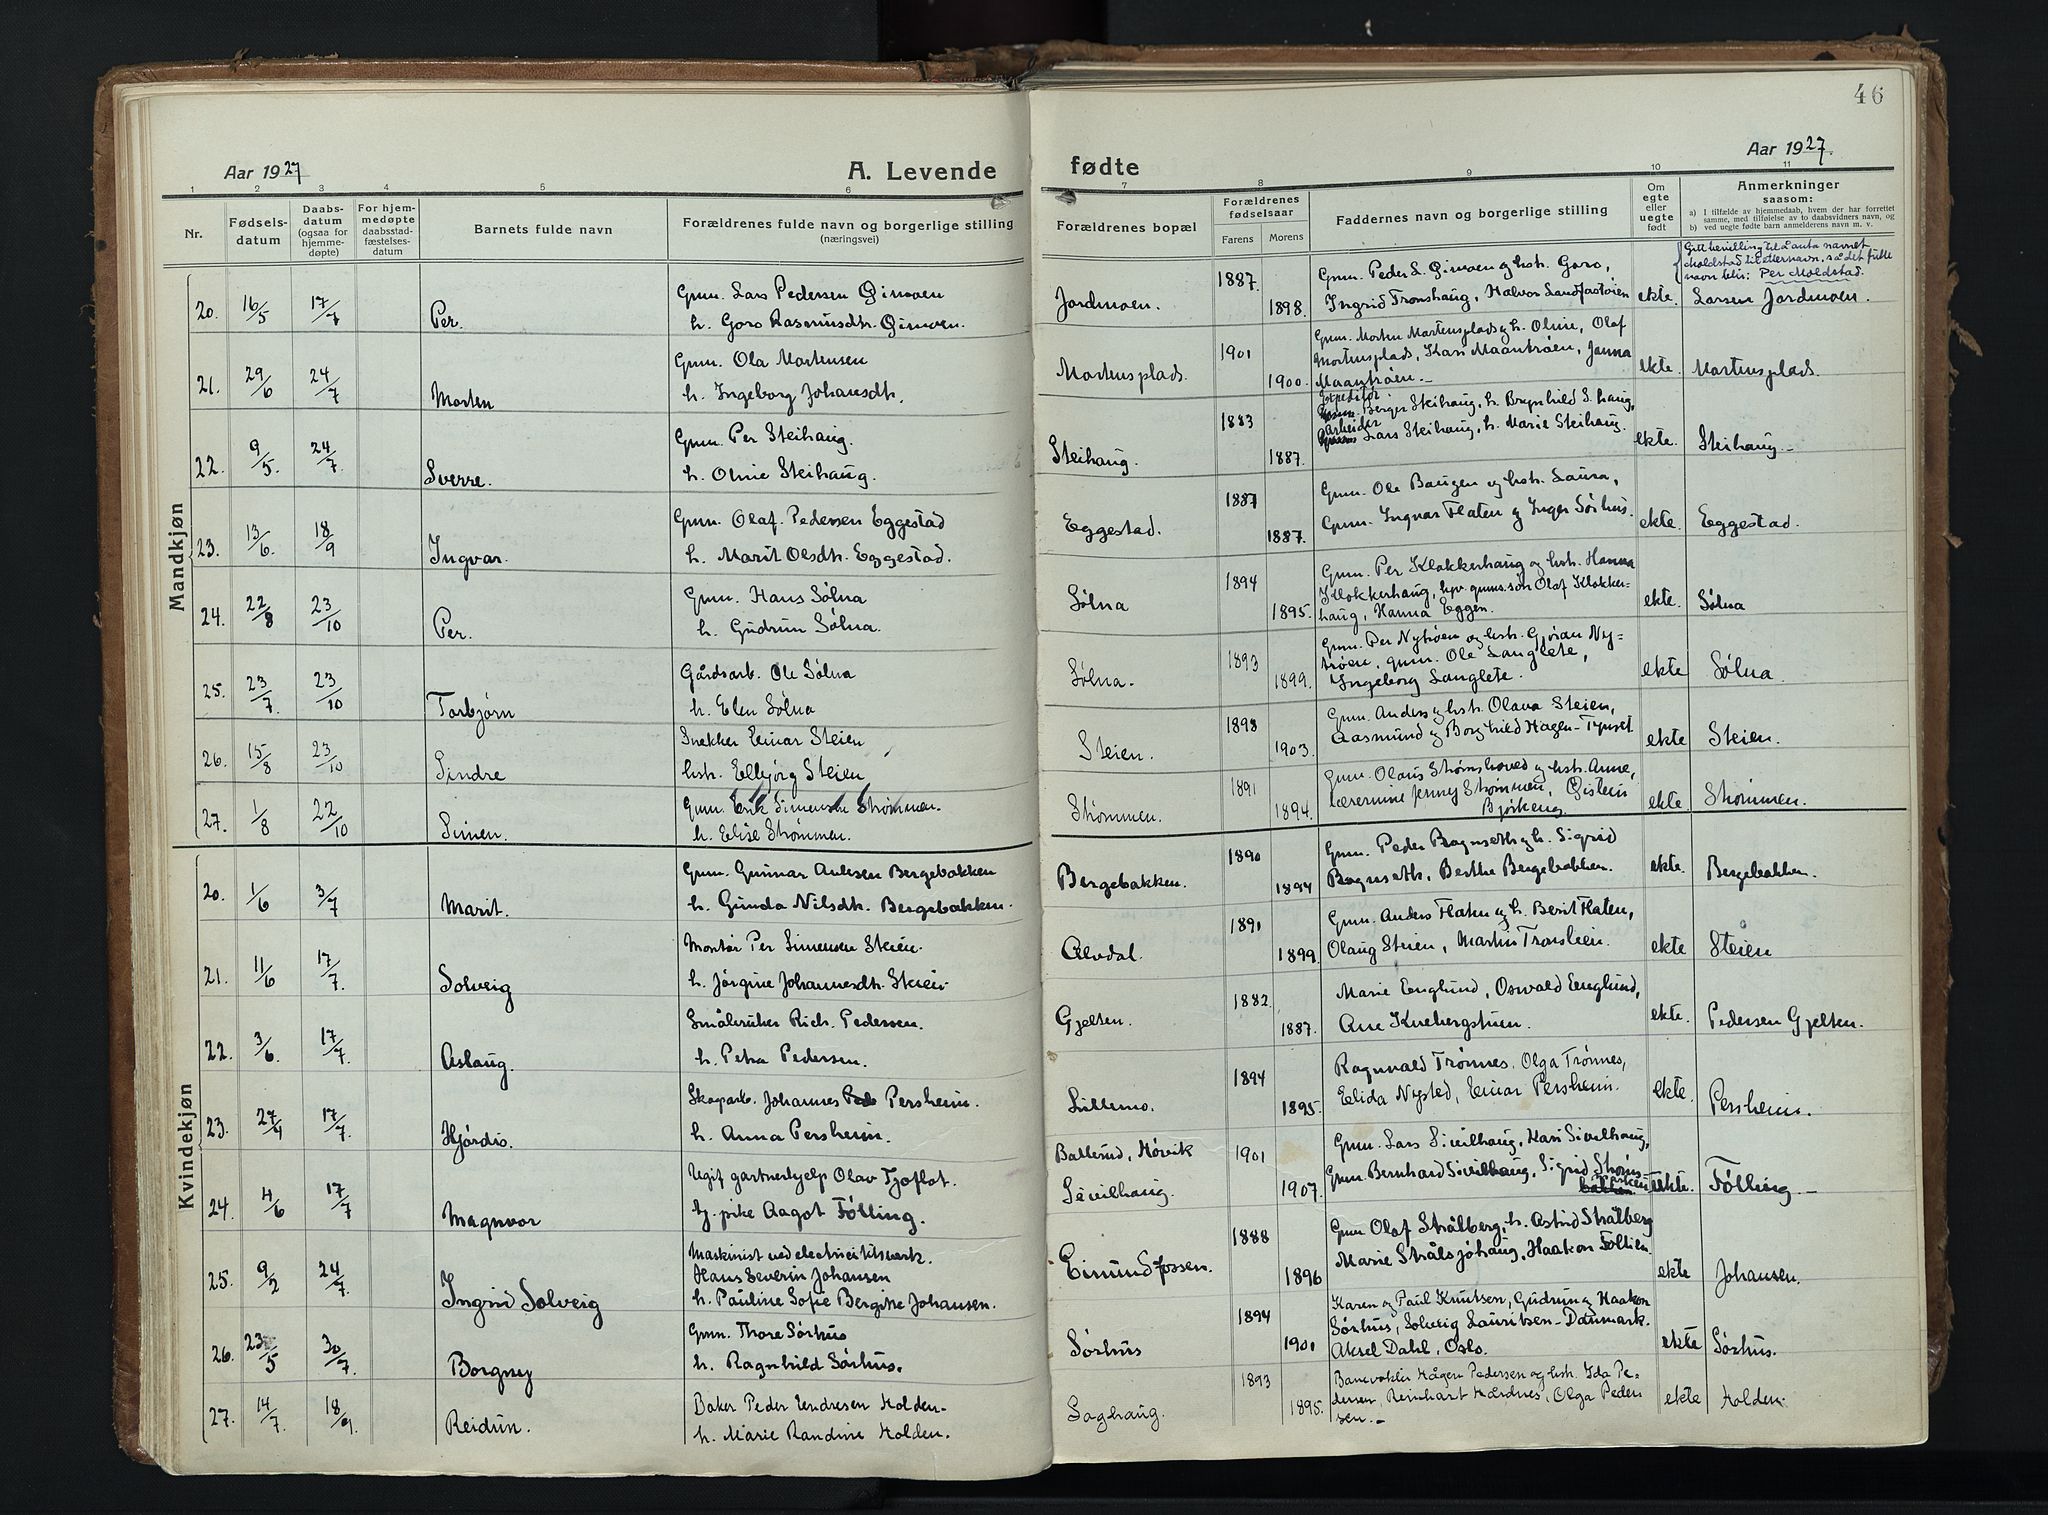 46
Aar 1927
A. Levende
fødte
Aar 1927.
1 2 3 4 5 6
7 8 9 10 11
Nr.
Fødsels-
datum
Daabs-
datum
(ogsaa for
hjemme-
døpte)
For hjem-
medøpte
daabsstad-
fæstelses-
datum
Barnets fulde navn
Forældrenes fulde navn og borgerlige stilling
(næringsvei)
Forældrenes bopæl
Forældrenes
fødselsaar
Farens
Morens
Faddernes navn og borgerlige stilling
Om
egte
eller
uegte
født
Anmerkninger
saasom:
a) I tilfælde av hjemmedaab, hvem der har forrettet
samme, med tilføielse av to daabsvidners navn, og
b) ved uegte fødte barn anmelderens navn m. v.
Mandkjøn
20. 16/5 17/7 Per.
Gmn. Lars Pedersen Øimoen
h. Goro Rasmusdtr. Øimoen.
Jordmoen. 1887 1898.
Gmn. Peder L. Øimoen og hstr. Goro,
Ingrid Tronshaug, Halvor Sandfastøien
ekte.
Gitt bevilling til å anta navnet
Moldstad til etternavn, så det fulle
navn blir: Per Moldstad.
Larsen Jordmoen.
21. 29/6 24/7 Morten
Gmn. Ola Mortensen
h. Ingeborg Johansdtr.
Mortensplads. 1901 1900.
Gmn. Morten Mortensplads og h. Oline, Olaf
Mortensplads, Kari Maantrøen, Janna
Maantrøen.
ekte. Mortensplads.
22. 9/5. 24/7. Sverre.
Gmn. Per Steihaug.
h. Oline Steihaug.
Steihaug. 1883 1887.
Expeditør
Berger Steihaug, h. Brynhild S.haug,
arbeider
Lars Steihaug, h. Marie Steihaug.
ekte. Steihaug
23. 13/6. 18/9 Ingvar.
Gmn. Olaf Pedersen Eggestad
h. Marit Olsdtr. Eggestad.
Eggestad. 1887 1887.
Gmn. Ole Baugen og hstr. Laura,
Gmn. Ingvar Flaten og Inger Sørhus.
ekte. Eggestad.
24. 22/8 23/10 Per.
Gmn. Hans Sølna
h. Gudrun Sølna.
Sølna 1894 1895.
Gmn. Per Klokkerhaug og hstr. Hanna
Klokkerhaug, hpv. gmns.søn Olaf Klokker-
haug, Hanna Eggen.
ekte. Sølna
25. 23/7. 23/10 Torbjørn
Gårdsarb. Ole Sølna
h. Elen Sølna
Sølna. 1893 1899.
Gmn. Per Nytrøen og hstr. Gjøran Ny-
trøen, gmn. Ole Langlete,
Ingeborg Langlete.
ekte Sølna.
26. 15/8 23/10 Sindre
Snekker Einar Steien
hstr. Elbjørg Steien
Steien. 1898 1903.
Gmn. Anders og hstr. Olava Steien,
Aasmund og Borghild Hagen-Tynset
ekte Steien.
27. 1/8 22/10 Simen.
Gmn. Erik Simensen Strømmen.
h. Elise Strømmen.
Strømmen. 1891 1894.
Gmn. Olaus Strømshoved og hstr. Anne,
lærerinne Jenny Strømmen, Øistein
Bjørkeng.
ekte Strømmen.
Kvindekjøn
20. 1/6 3/7 Marit.
Gmn. Gunnar Bergebakken
h. Gunda Nilsdtr. Bergebakken.
Bergebakken. 1890 1894
Gmn. Peder Bagnseth og h. Sigrid
Bagnseth, Berthe Bergebakken.
ekte. Bergebakken.
21. 11/6 17/7. Solveig
Montør Per Simensen Steien.
h. Jørgine Johannesdtr. Steien
Alvdal. 1891 1899.
Gmn. Anders Flaten og h. Berit Flaten,
Olaug Steien, Martin Tronslien.
ekte Steien
22. 3/6 17/7 Aslaug.
Småbruker Rich. Pedersen.
h. Petra Pedersen.
Gjelten. 1882. 1887.
Marie Englund, Oswald Englund,
Ane Knebergstuen.
ekte. Pedersen Gjelten.
23. 27/4 17/7. Hjørdis.
Skogarb. Johannes Persheim.
h. Anna Persheim.
Lilleno. 1894 1895.
Ragnvald Trønnes, Olga Trønnes,
Elida Nysted, Einar Persheim.
ekte. Persheim.
24. 4/6 17/7 Magnvor
Ugif gartnerhjelp Olav Tjoflot.
tj.pike Aagot Følling.
Ballerud, Høvik
Sivilhaug. 1901 1907.
Gmn. Lars Sivilhaug, Kari Sivilhaug,
Gmn Bernhard Sivilhaug, Sigrid Strøms-
bakken
uekte. Følling
25. 9/2 24/7. Ingrid Solveig
Maskinist ved electricitetsverk.
Hans Severin Johansen
h. Pauline Sofie Bergitte Johansen.
Eimundfossen. 1888 1896
Gmn Olaf Strålberg, h. Astrid Strålberg
Marie Strålsjøhaug, Haakon Follien.
ekte Johansen.
26. 23/5 30/7. Borgny
Gmn. Thore Sørhus
h. Ragnhild Sørhus.
Sørhus 1894 1901
Karen og Paul Knutsen, Gudrun og Haakon
Sørhus, Solveig Lauritsen-Danmark.
Aksel Dahl, Oslo.
ekte Sørhus.
27. 14/7. 18/9. Reidun.
Baker Peder Endresen Holden
h. Marie Randine Holden.
Saghaug. 1893 1895.
Banevokter Hågen Pedersen og hstr. Ida Pe-
dersen, Reinhart Hordnes, Olga Peder
sen.
ekte Holden.